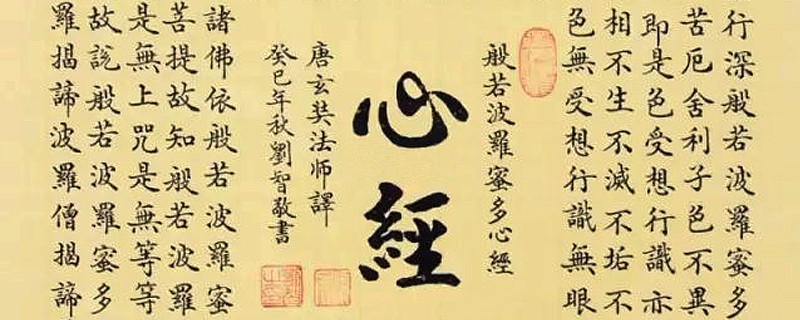 行深般若波羅蜜多
苦厄舍利子色不異
即是色受想行識亦
相不生不滅不垢不
色無受想行識無眼
般若波羅蜜多心經
心經
唐玄奘法師譯
癸巳年秋劉智敬書
諸佛依般若波羅蜜
菩提故知般若波羅
是無上咒是無等等
故說般若波羅蜜多
羅揭諦波羅僧揭諦